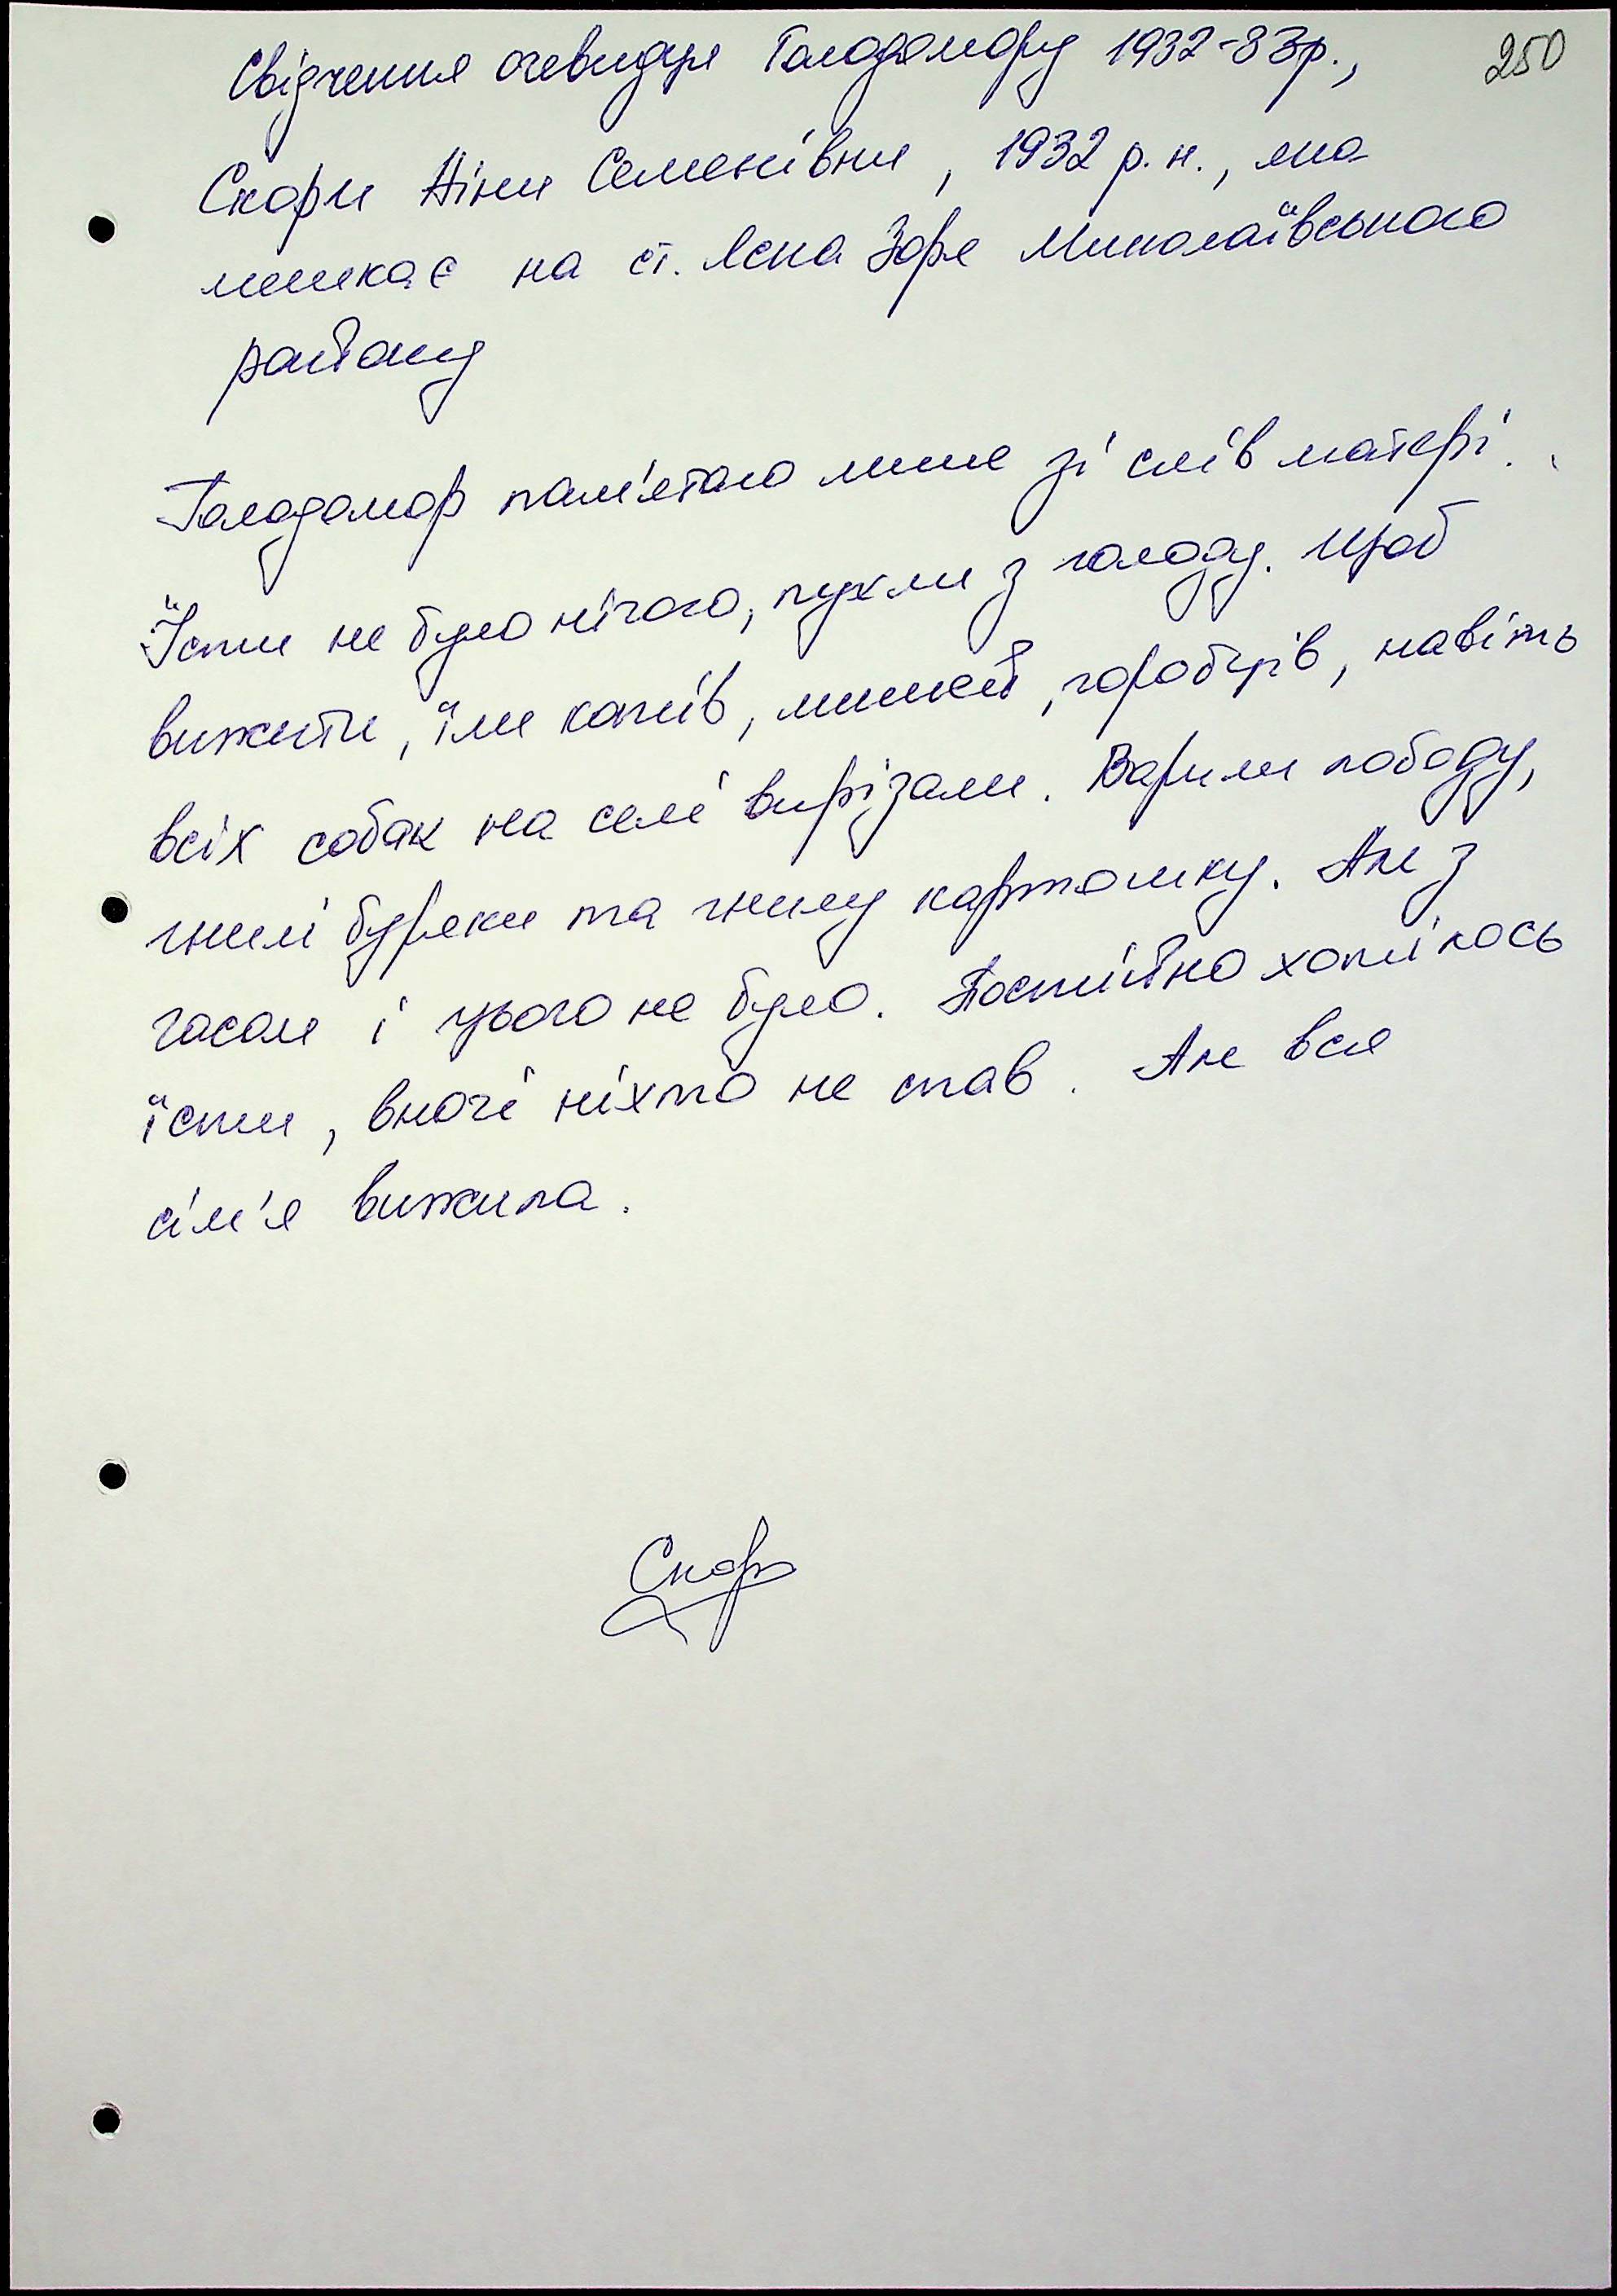 250
Свідчення очевидця Голодомору 1932-33р.,
Скори Ніни Семенівни, 1932 р.н., яка
мешкає на ст. Ясна Зоря Миколаївського
району
Голодомор пам'ятаю лише зі слів матері.
Їсти не було нічого, пухли з голоду. Щоб
вижити, їли котів, мишей, горобців, навіть
всіх собак на селі вирізали. Варили лободу,
гнилі буряки та гнилу картошку. Але з
часом і цього не було. Постійно хотілось
їсти, вночі ніхто не спав. Але вся
сім'я вижила.
Скор